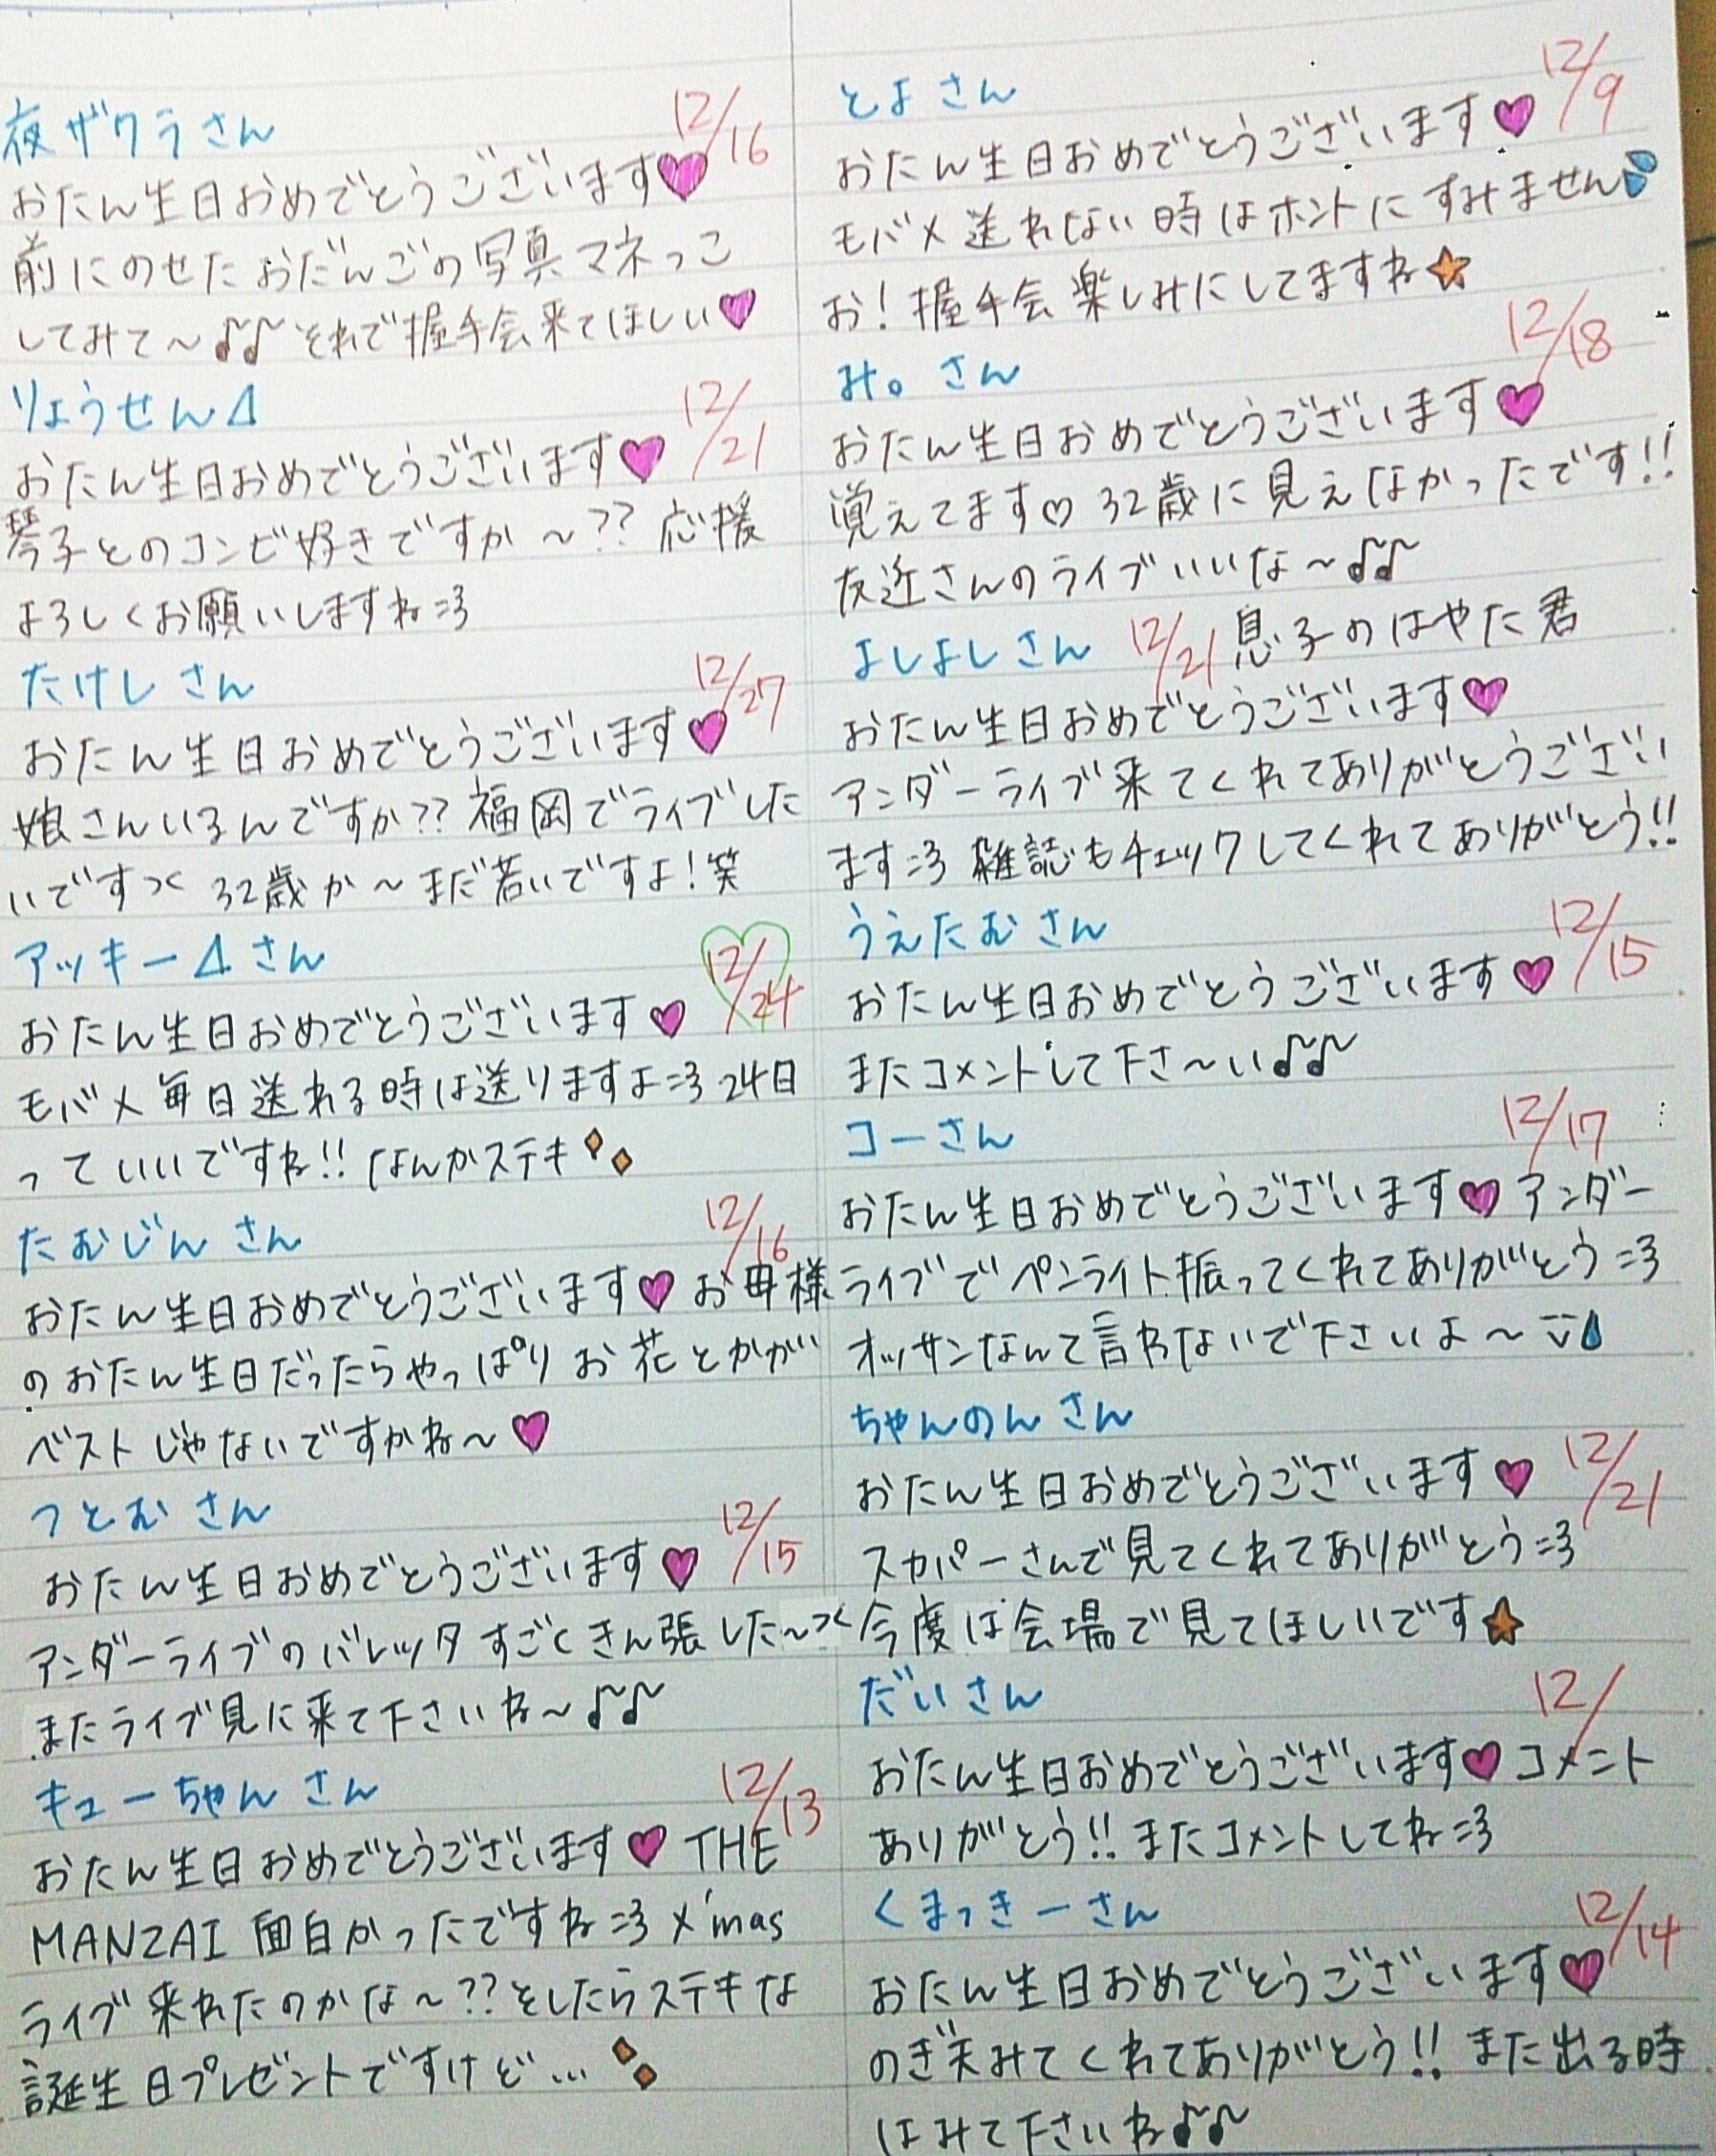 夜ザクラさん 12/16
おたん生日おめでとうございます♥
前にのせたおだんごの写真マネっこ
してみて～♪♪それで握手会来てほしい♥
りょうせん⊿ 12/21
おたん生日おめでとうございます♥
琴子とのコンビ好きですか～??応援
よろしくお願いしますね=3
たけしさん 12/27
おたん生日おめでとうございます♥
娘さんいるんですか??福岡でライブした
いですつく 32歳か～まだ若いですよ!笑
アッキー⊿さん 12/24
おたん生日おめでとうございます♥
モバメ毎日送れる時は送りますよ=3 24日
っていいですね!!なんかステキ
たむじんさん 12/16
おたん生日おめでとうございます♥お母様
のおたん生日だったらやっぱりお花とかが
ベストじゃないですかね～♥
つとむさん 12/15
おたん生日おめでとうございます♥
アンダーライブのバレッタすごくきん張した～つく
またライブ見に来て下さいね～♪♪
キューちゃんさん 12/13
おたん生日おめでとうございます♥THE
MANZAI面白かったですね=3 X'mas
ライブ来れたのかな～??としたらステキな
誕生日プレゼントですけど…
とよさん 12/9
おたん生日おめでとうございます♥
モバメ送れない時はホントにすみません
お!握手会楽しみにしてますね☆
み。さん 12/18
おたん生日おめでとうございます♥
覚えてます♡32歳に見えなかったです!!
友近さんのライブいいな～♪♪
よしよしさん 12/21 息子のはやた君
おたん生日おめでとうございます♥
アンダーライブ来てくれてありがとうござい
ます=3 雑誌もチェックしてくれてありがとう!!
うえたむさん 12/15
おたん生日おめでとうございます♥
またコメントして下さ～い♪♪
コーさん 12/17
おたん生日おめでとうございます♥アンダー
ライブでペンライト振ってくれてありがとう=3
オッサンなんて言わないで下さいよ～
ちゃんのんさん
おたん生日おめでとうございます♥ 12/21
スカパーさんで見てくれてありがとう=3
今度は会場で見てほしいです☆
だいさん 12/
おたん生日おめでとうございます♥コメント
ありがとう!!またコメントしてね=3
くまっきーさん 12/14
おたん生日おめでとうございます♥
のぎ天みてくれてありがとう!!また出る時
はみて下さいね♪♪